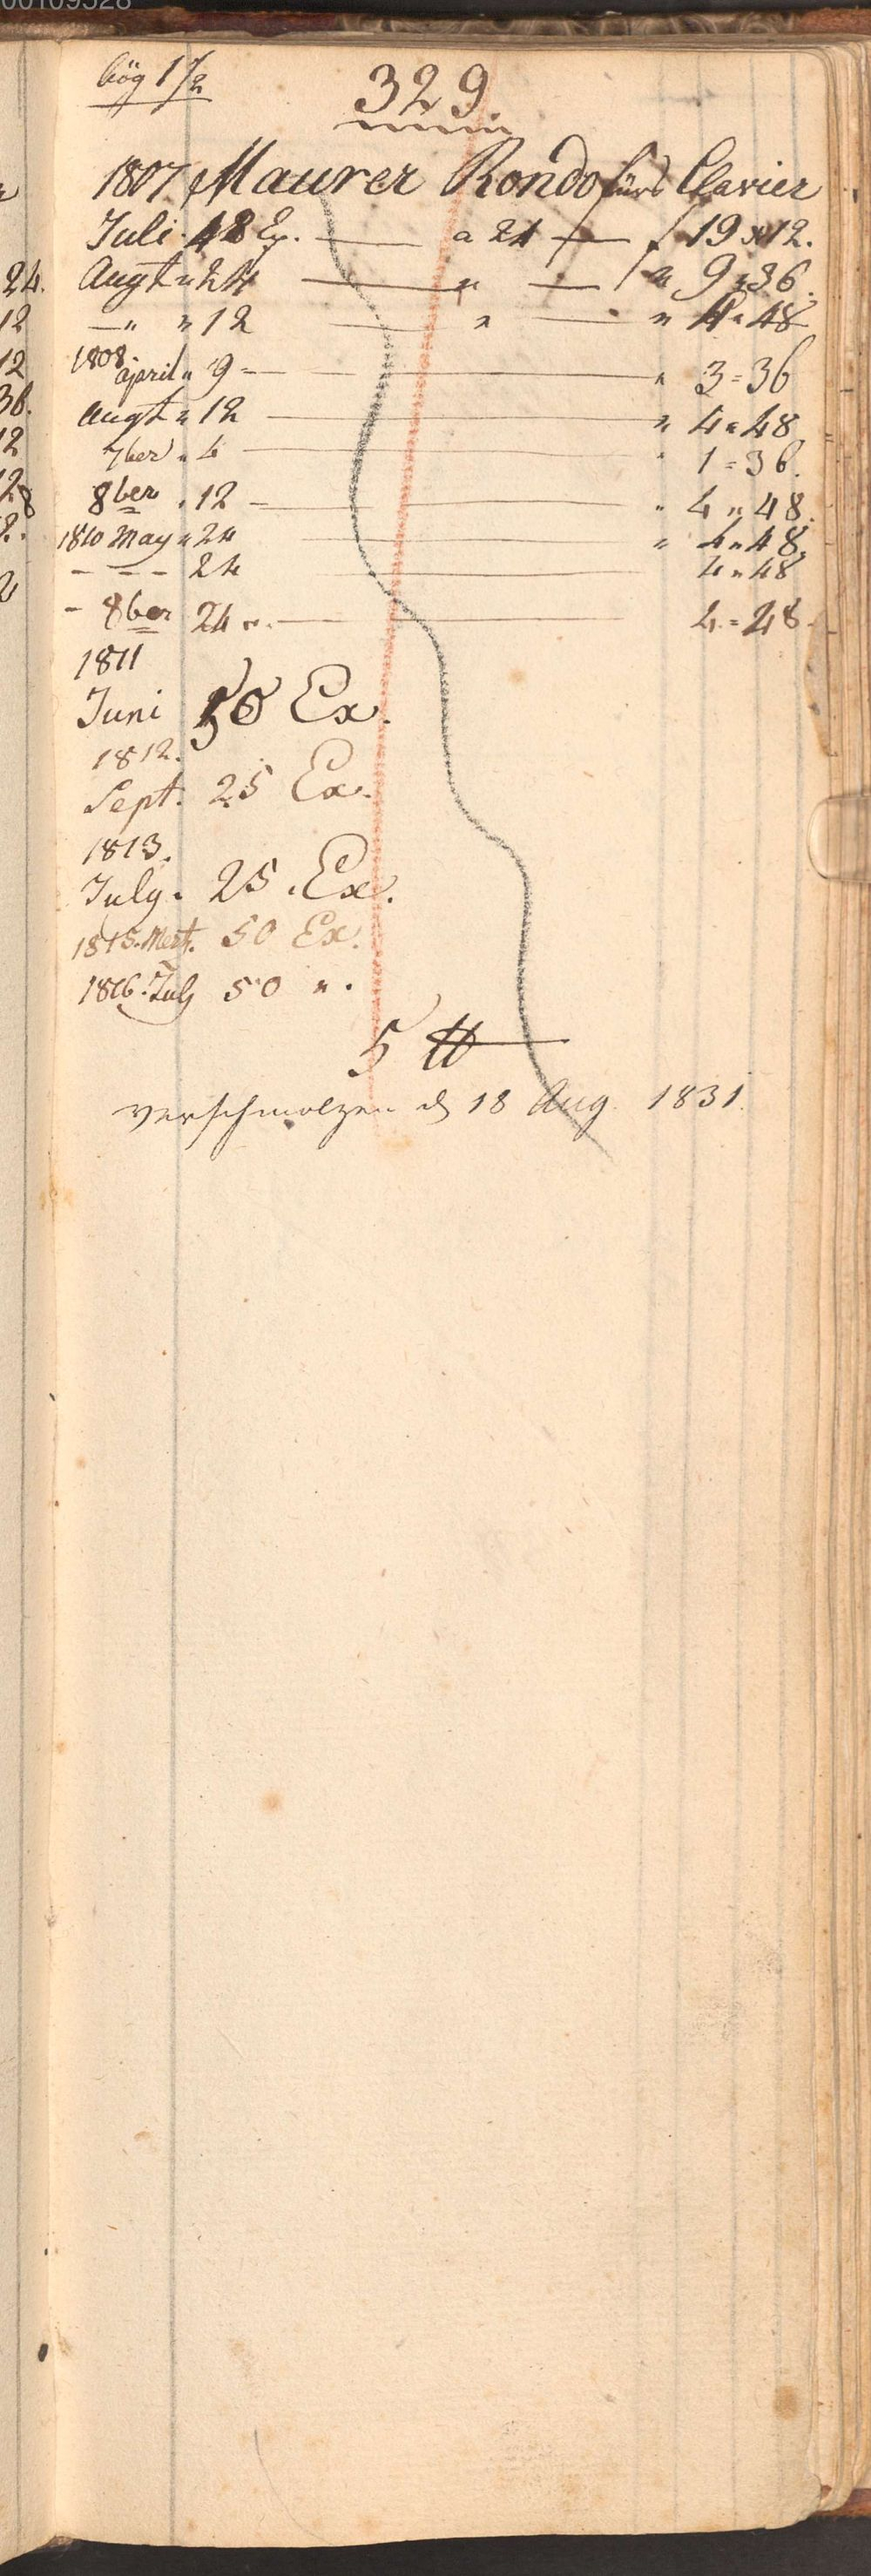 00109528
bög 1 1/2
329
1807 Maurer Rondo fürs Clavier
Juli 48 Ex. — a 24 — f 19 x 12.
Augt " 24 — " — " 9 " 36.
— " " 12 — " — " 4 " 48
1808.
april " 9 = — " 3 = 36
Augt " 12 — " 4 " 48
7ber " 4 — " 1 = 36.
8ber " 12 — " 4 " 48.
1810 May " 24 — " 4 " 48.
- - - 24 — 4 " 48
- 8ber 24 " — 4 = 48.
1811
Juni 50 Ex.
1812.
Sept. 25 Ex.
1813.
July. 25. Ex.
1815. Mert. 50 Ex.
1816. July 50 " .
5 ℔
verschmolzen d 18 Aug 1831.
24.
12
12
36.
12